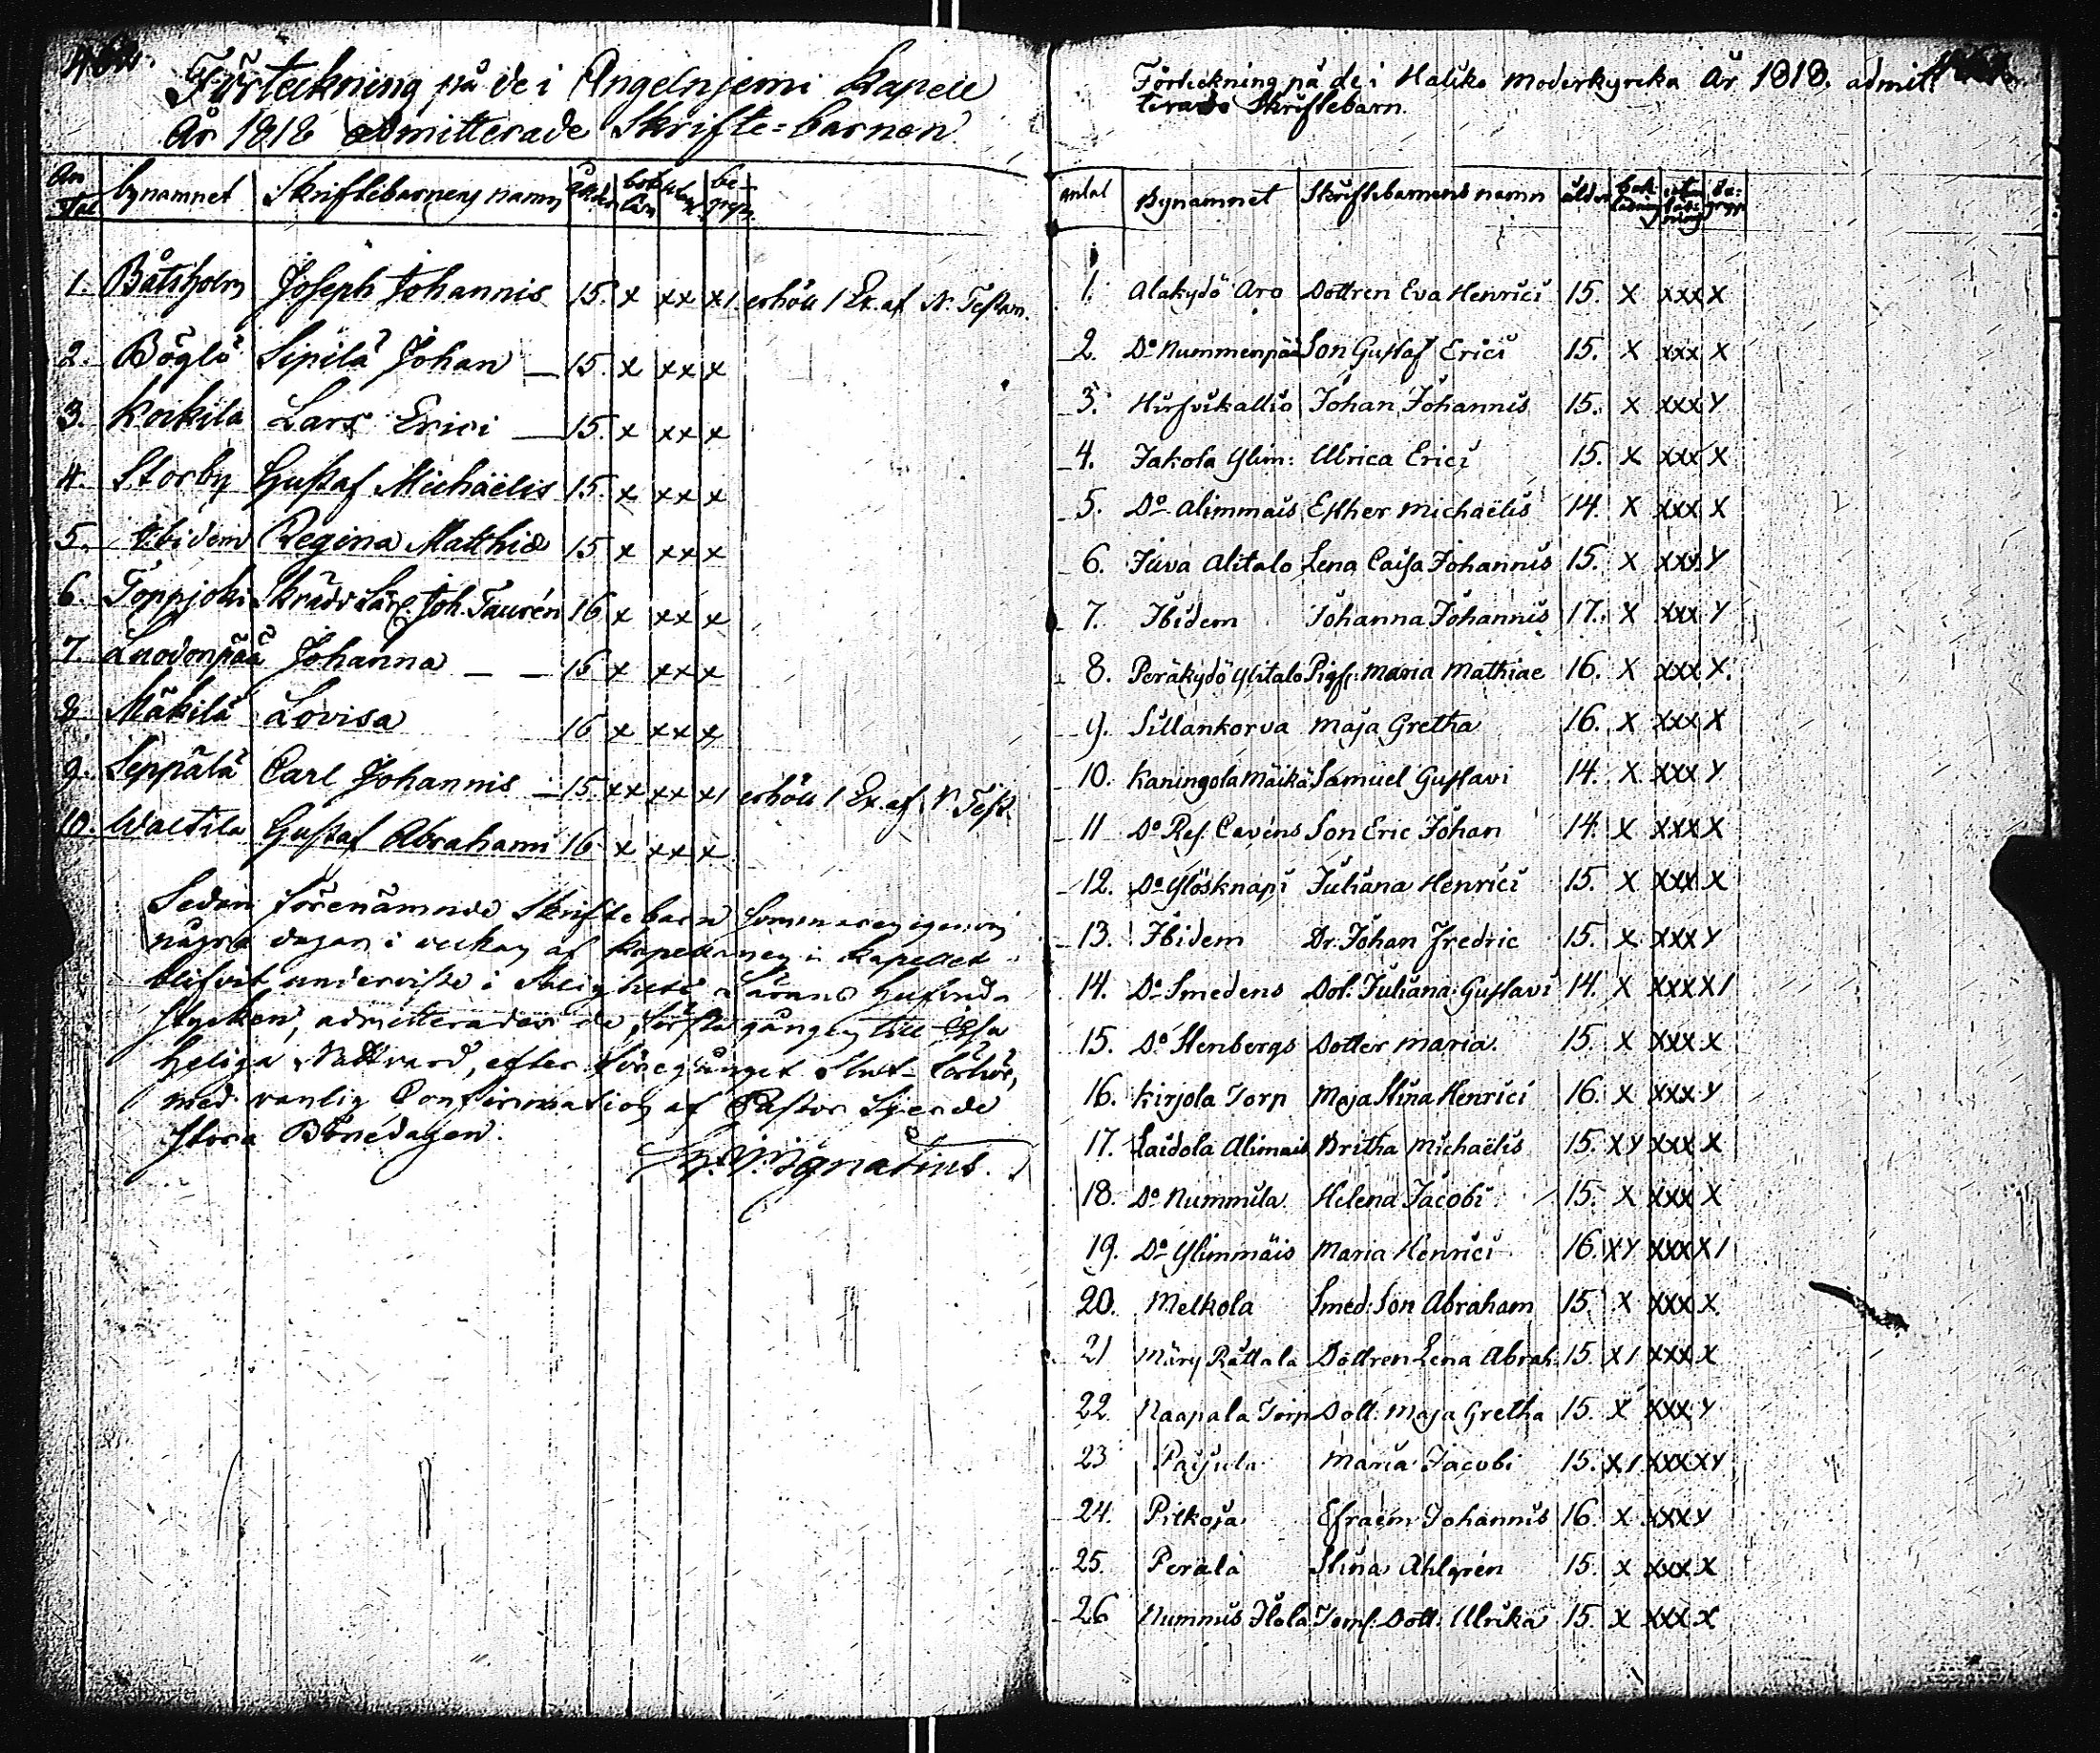 Förteckning på de i Angelnjemi Kapell
År 1818 admitterade Skrifte=barnen
An
tal bynamnet Skriftebarnens namn åldern bok utan be-
1. Båtsholm Joseph Johannis 15. x xx x1. erhöll 1 Ex. af N. Testam.
2. Böglö Sipilä Johan — 15. x xx x
3. Kokkila Lars Erici — 15. x xx x
4. Storby Gustaf Michaëlis 15. x xx x
5. Ibidem Regina Matthiæ 15 x xx x
6. Toppjoki Skrädd. Lärl. Joh. Taurén 16 x xx x
7. Luodonpää Johanna — — 16 x xx x
8 Mäkilä Lovisa 16 x xx x
9. Seppälä Carl Johannis — 15. xx xx x1 erhöll 1 Ex. af N. Test.
10. Waltila Gustaf Abrahami 16. x xx x
Sedan förenämnde Skriftebarn
några dagar i veckan af Kapellanen i Kapellet
blifvit underviste i Salighets Lärans hufvud-
stycken, admitterades de första gången till
heliga Nattvard, efter föregånget Slut-förhör,
med vanlig Confirmation af Pastor
Stora Bönedagen.
Ignatius.
Förteckning på de i Haliko Moderkyrcka År 1818. admit-
terade Skriftebarn.
antal Bynamnet Skriftebarnens namn ålder bok- utan be-
1. Alakydö Aro Dottren Eva Henrici 15. X XXX X
2. Do Nummenpää Son Gustaf Erici 15. X XXX X
3. Hirfvikallio Johan Johannis 15. X XXX Y
4. Jakola Ylim: Ulrica Erici 15. X XXX X
5. Do Alimmais Esther Michaëlis 14. X XXX X
6. Juva Alitalo Lena Caisa Johannis 15. X XXX Y
7. Ibidem Johanna Johannis 17. X XXX Y
8. Peräkydö Ylitalo Pig: Maria Mathiae 16. X XXX X.
9. Sillankorva Maja Gretha 16. X XXX X
10. Kaningola Mäikä Samuel Gustavi 14. X XXX Y
11 Do Ref. Cavéns Son Eric Johan 14. X XXX X
12. Do Ylösknapi Juliana Henrici 15. X XXX X
13. Ibidem Dr. Johan Fredric 15. X XXX Y
14. Do Smedens Dot. Juliana Gustavi 14. X XXX X1
15. Do Stenbergs Dotter Maria. 15. X XXX X
16. Kirjola Torp Maja Stina Henrici 16. X XXX Y
17. Laidola Alimais Britha Michaëlis 15. XY XXX X
18. Do Nummila Helena Jacobi 15. X XXX X
19. Do Ylimmäis Maria Henrici 16. XY XXX X1
20. Melkola Smed: Son Abraham 15. X XXX X.
21 Märy Rättala Dottren Lena Abrah. 15. X1 XXX X
22. Naapala Torp Dott: Maja Gretha 15. X XXX Y
23 Paijula Maria Jacobi 15. X1 XXX XY
24. Pitkoja Efraem Johannis 16. X XXX Y
25. Perälä Stina Ahlgrén 15. X XXX X
26 Nummis Ilola Torp: Dott: Ulrika 15. X XXX X